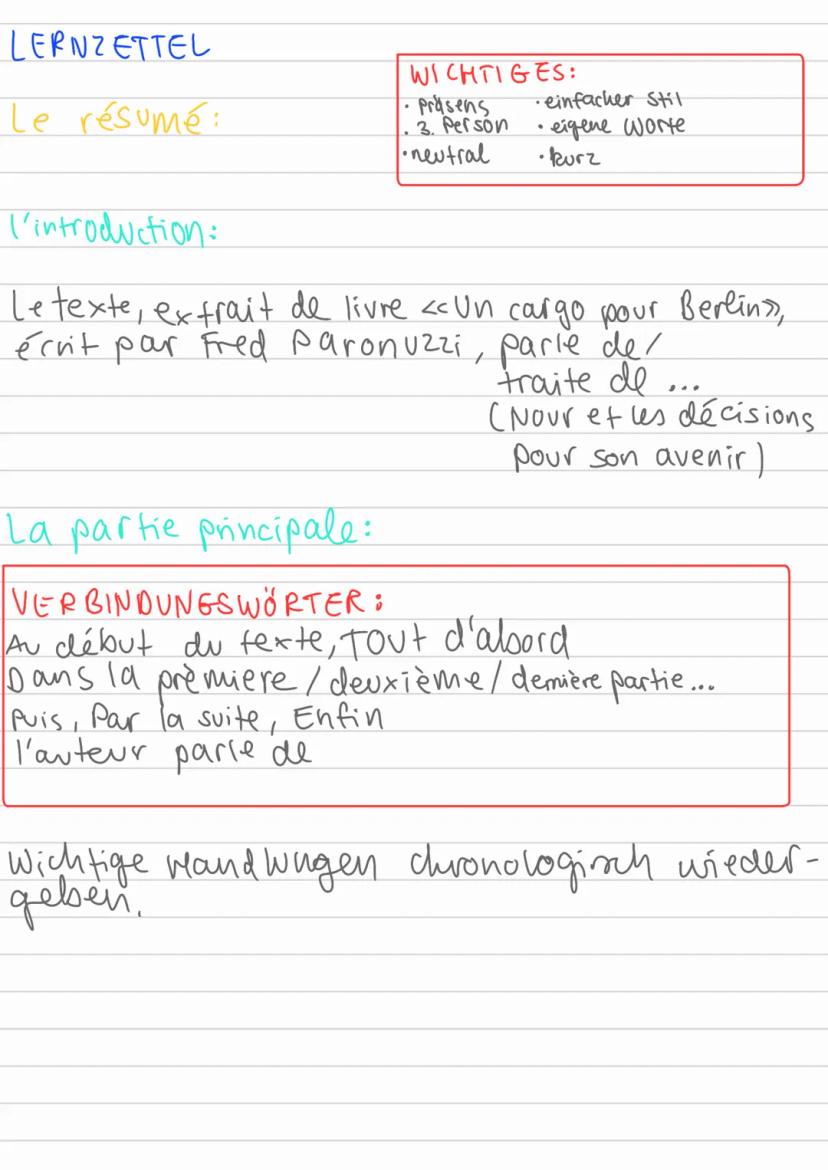 LERNZETTEL
WICHTIGES:
Le résumé:
· Präsens · einfacher Stil
· 3. Person · eigene Worte
· neutral · kurz
l'introduction:
Le texte, extrait de livre <<Un cargo pour Berlin>>,
écrit par Fred Paronuzzi, parle de/
traite de ...
(Nour et les décisions
pour son avenir)
La partie principale:
VERBINDUNGSWÖRTER:
Au début du texte, Tout d'abord
Dans la prèmiere / deuxième / dernière partie...
Puis, Par la suite, Enfin
l'auteur parle de
Wichtige Handlungen chronologisch wieder-
geben.